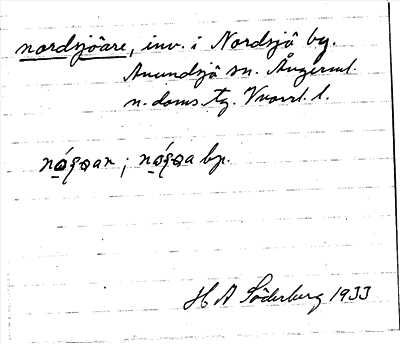 nordsjöare, inv. i Nordsjö by.
Anundsjö sn. Ångerml
n. doms. tg.
; by.
H A Söderberg 1933